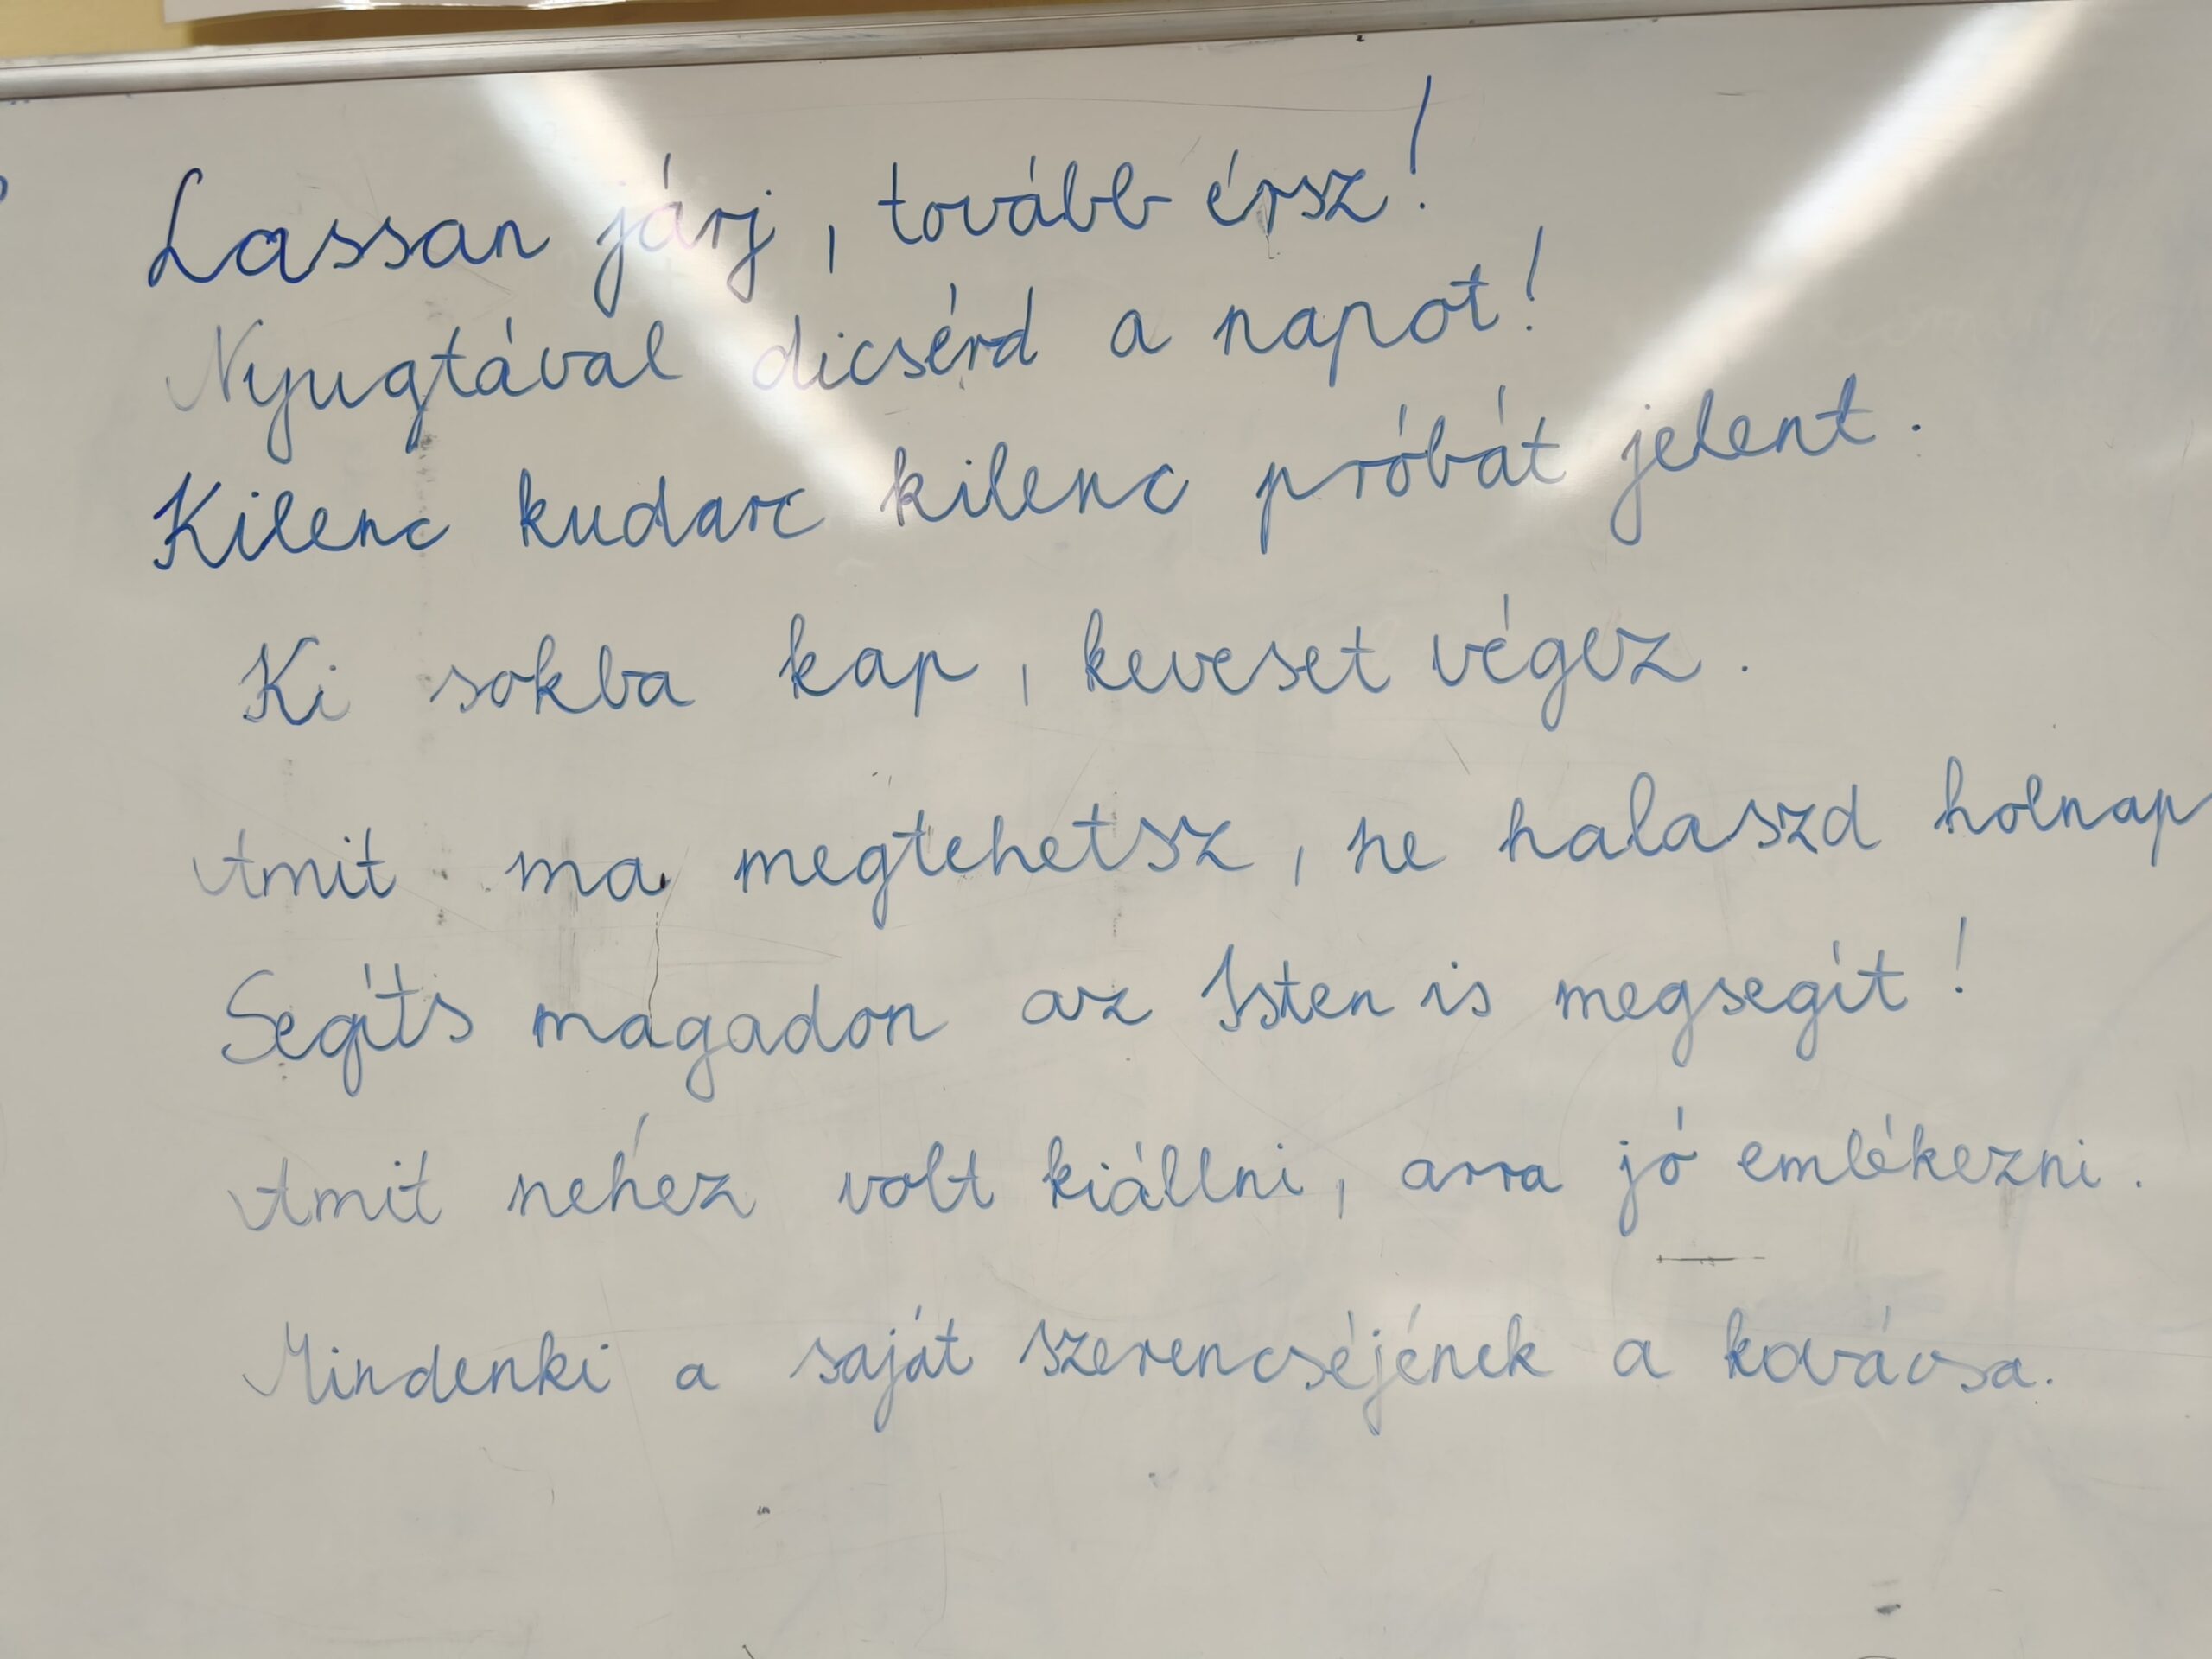 Lassan járj, tovább érsz!
Nyugtával dicsérd a napot!
Kilenc kudarc kilenc próbát jelent.
Ki sokba kap, keveset végez.
Amit ma megtehetsz, ne halaszd holnap
Segíts magadon az Isten is megsegít!
Amit nehéz volt kiállni, arra jó emlékezni.
Mindenki a saját szerencséjének a kovácsa.